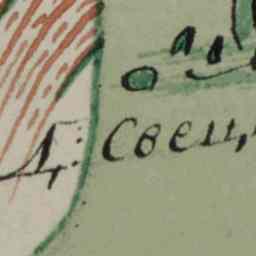 Д: Свец